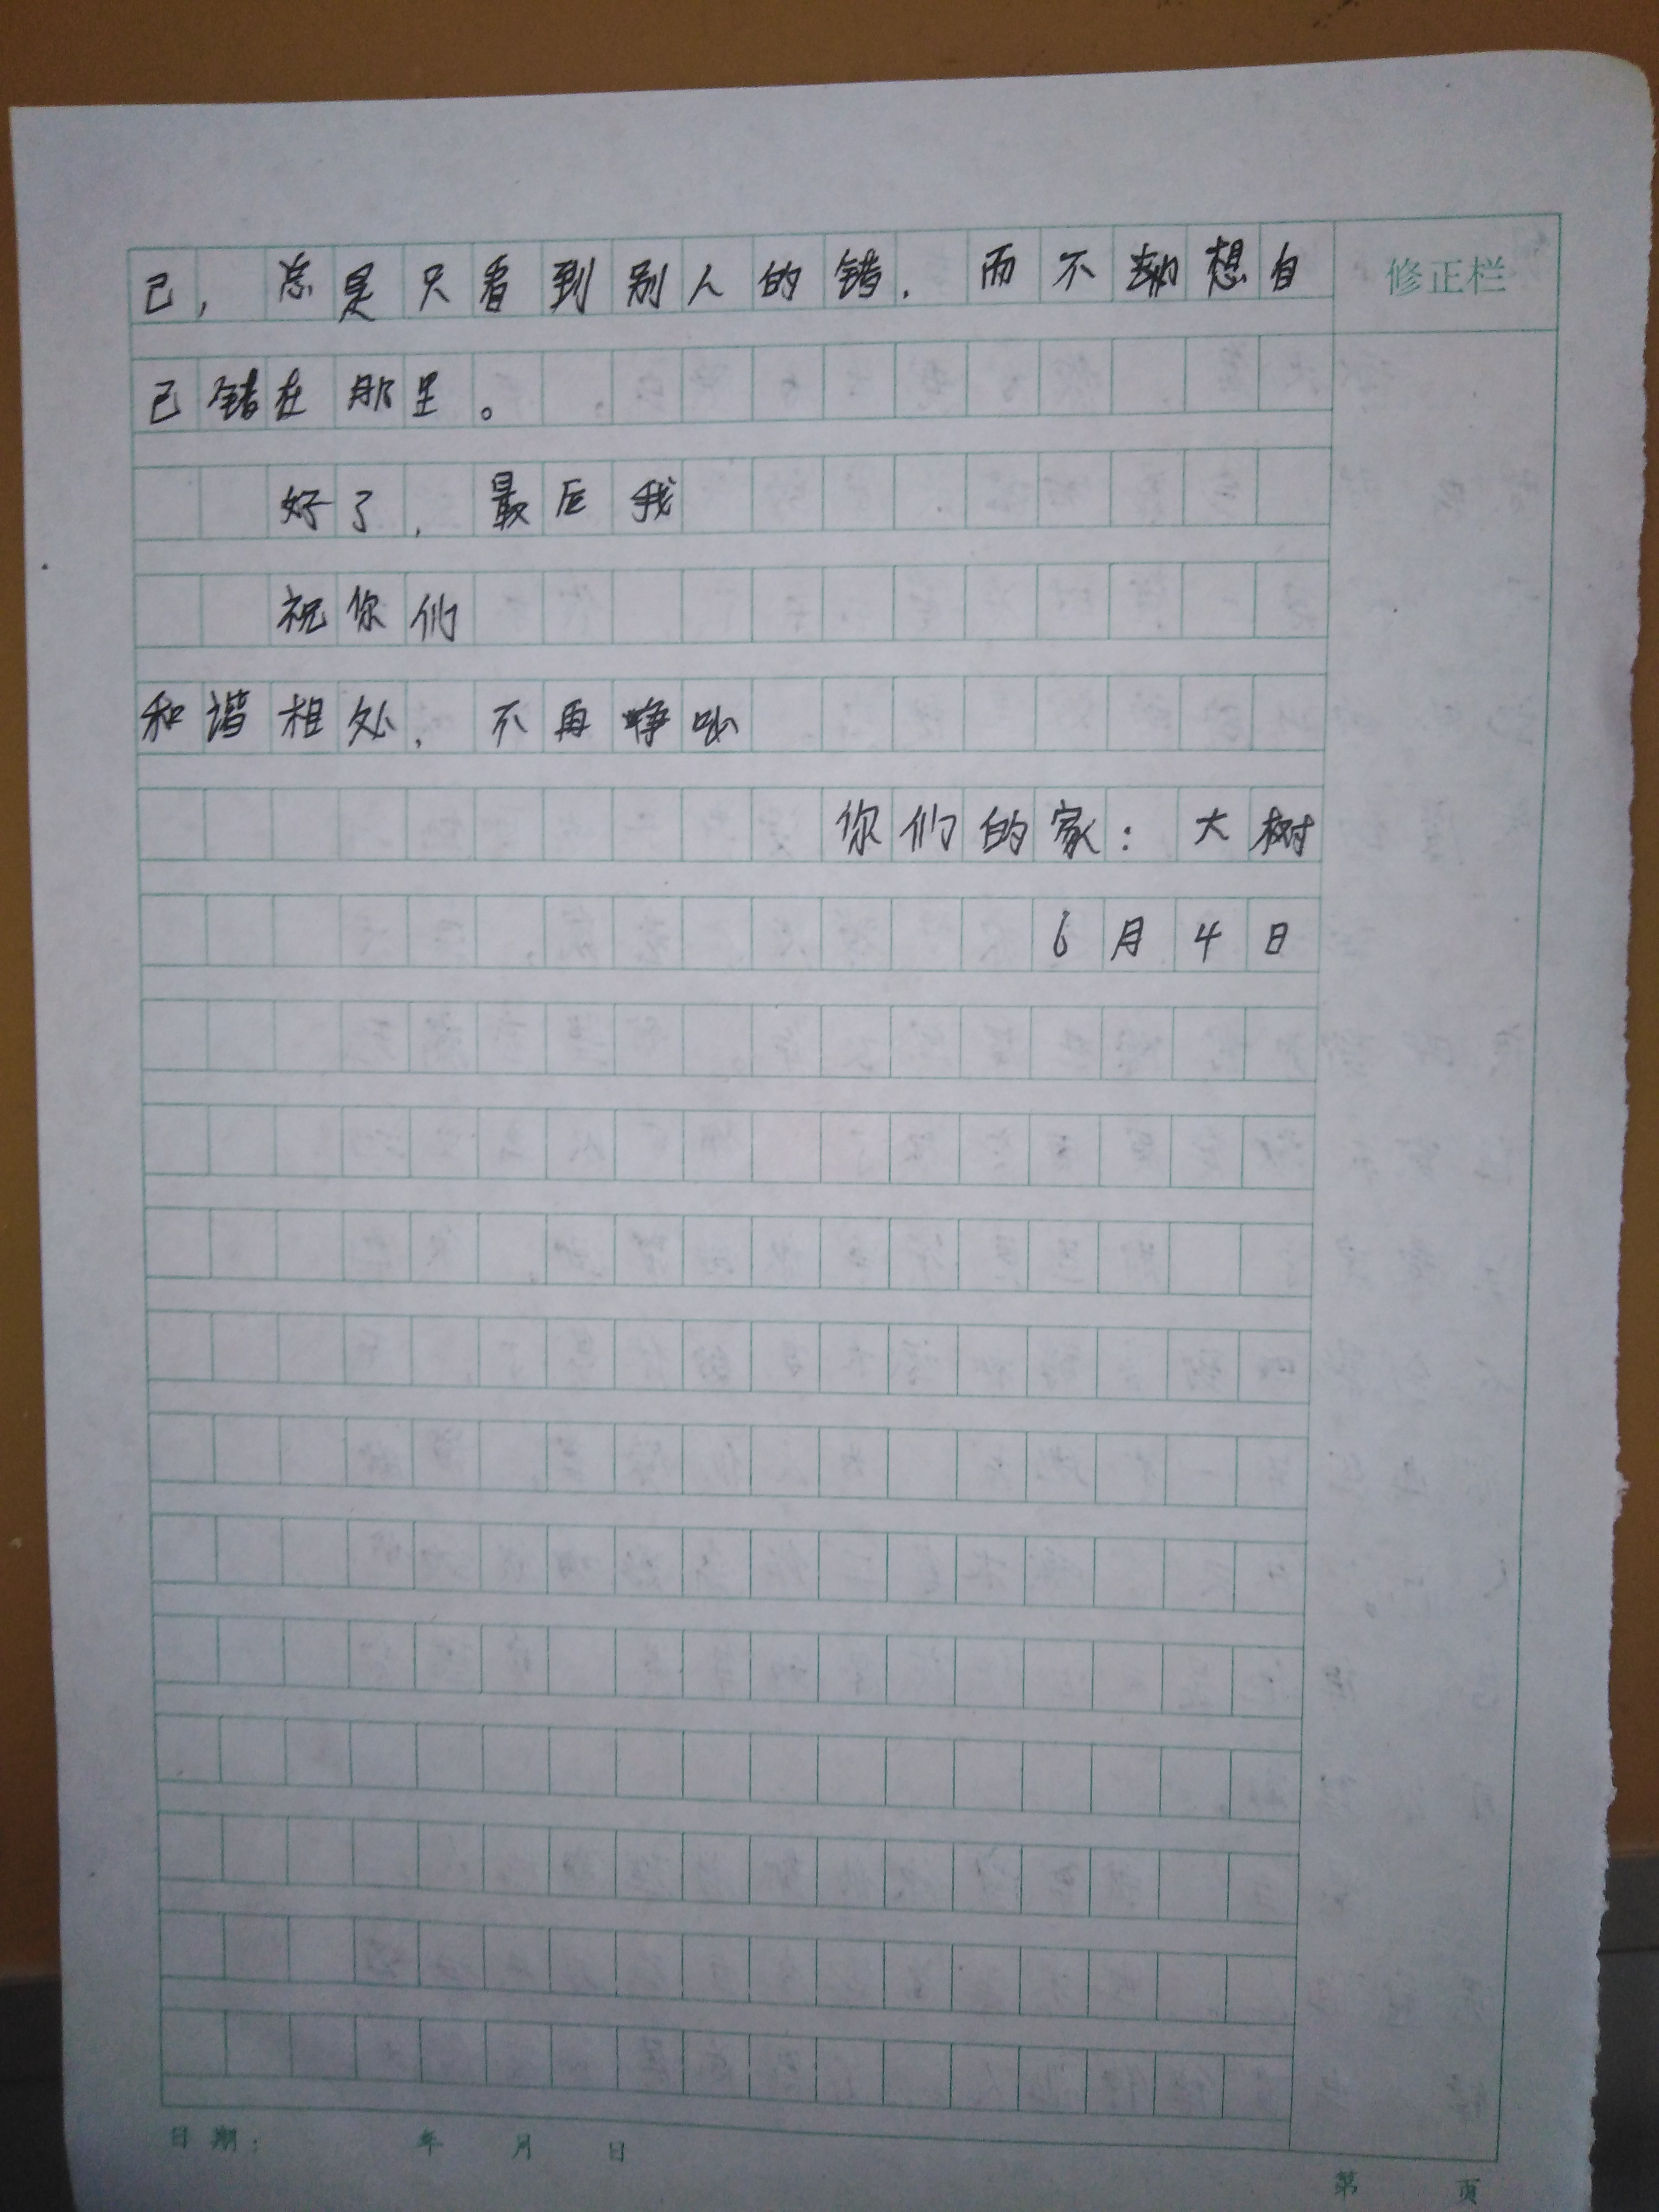 己，总是只看到别人的错，而不想自
修正栏
己错在那里。
好了，最后我
祝你们
和谐相处，不再争吵
你们的家：大树
6月4日
日期： 年 月 日
第 页